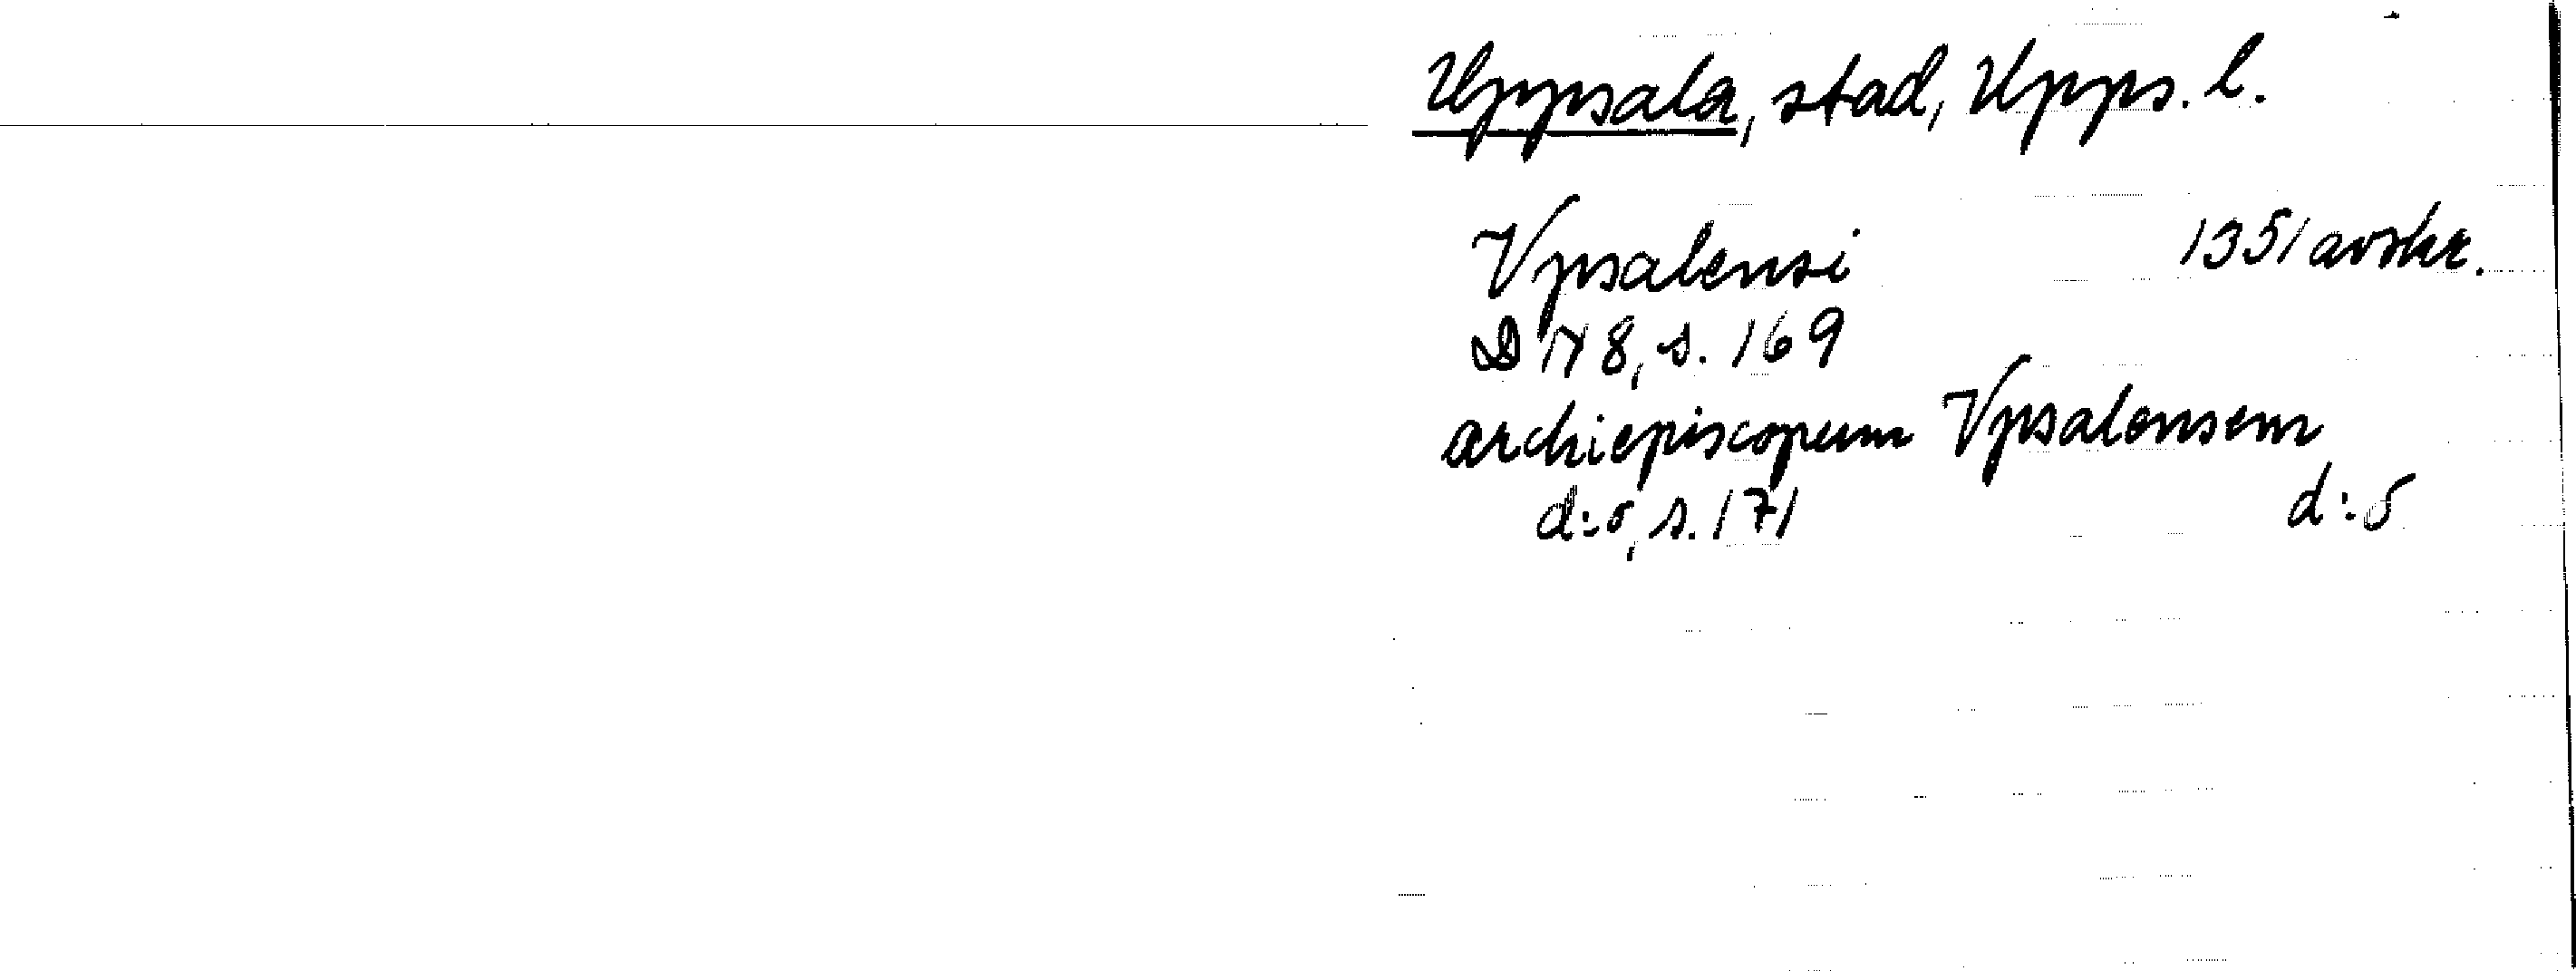 Uppsala, stad, Upps. l.
Vpsalensi 1351 avskr.
DN 8, s. 169
archiepiscopum Vpsalensem
d:o, s. 171 d:o